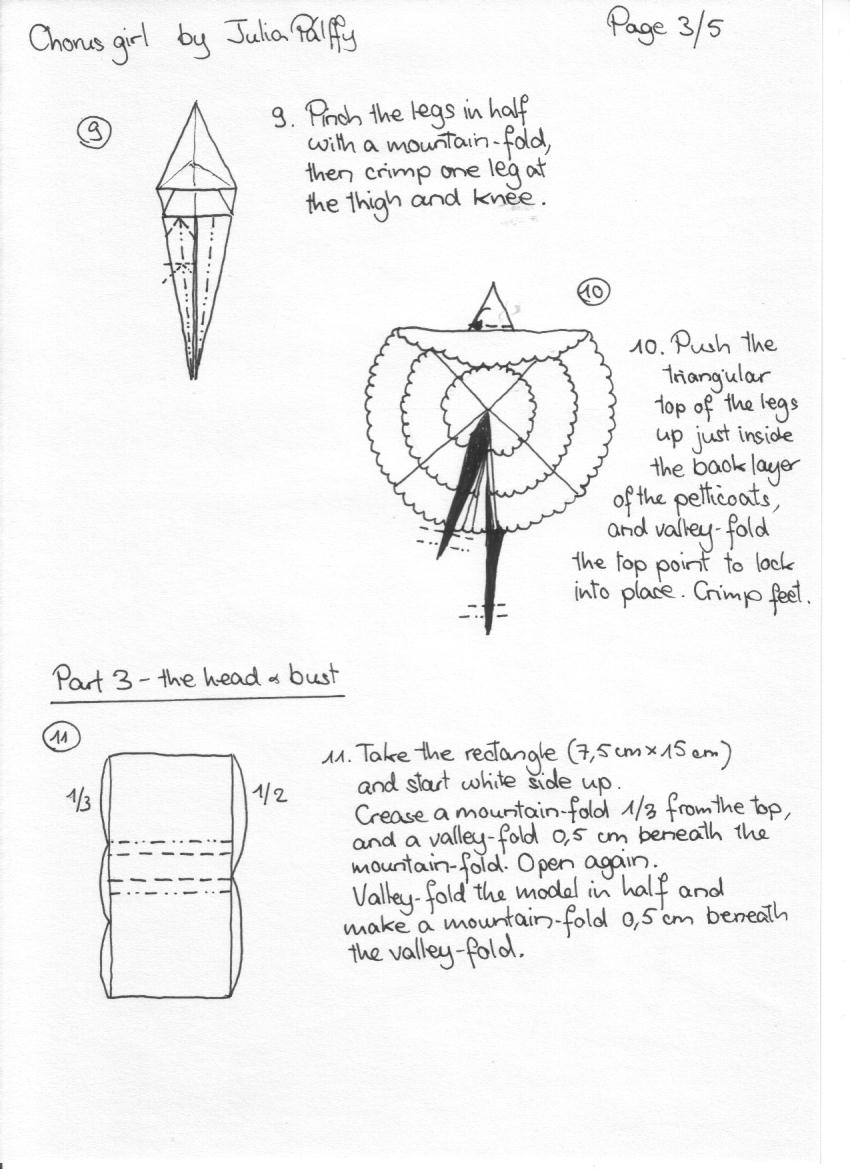 Chorus girl by Julia Pálffy
Page 3/5
9
9. Pinch the legs in half
with a mountain-fold,
then crimp one leg at
the thigh and knee.
10
10. Push the
triangular
top of the legs
up just inside
the back layer
of the petticoats,
and valley-fold
the top point to lock
into place. Crimp feet.
Part 3 - the head & bust
11
1/3
1/2
11. Take the rectangle (7,5 cm × 15 cm)
and start white side up.
Crease a mountain-fold 1/3 from the top,
and a valley-fold 0,5 cm beneath the
mountain-fold. Open again.
Valley-fold the model in half and
make a mountain-fold 0,5 cm beneath
the valley-fold.